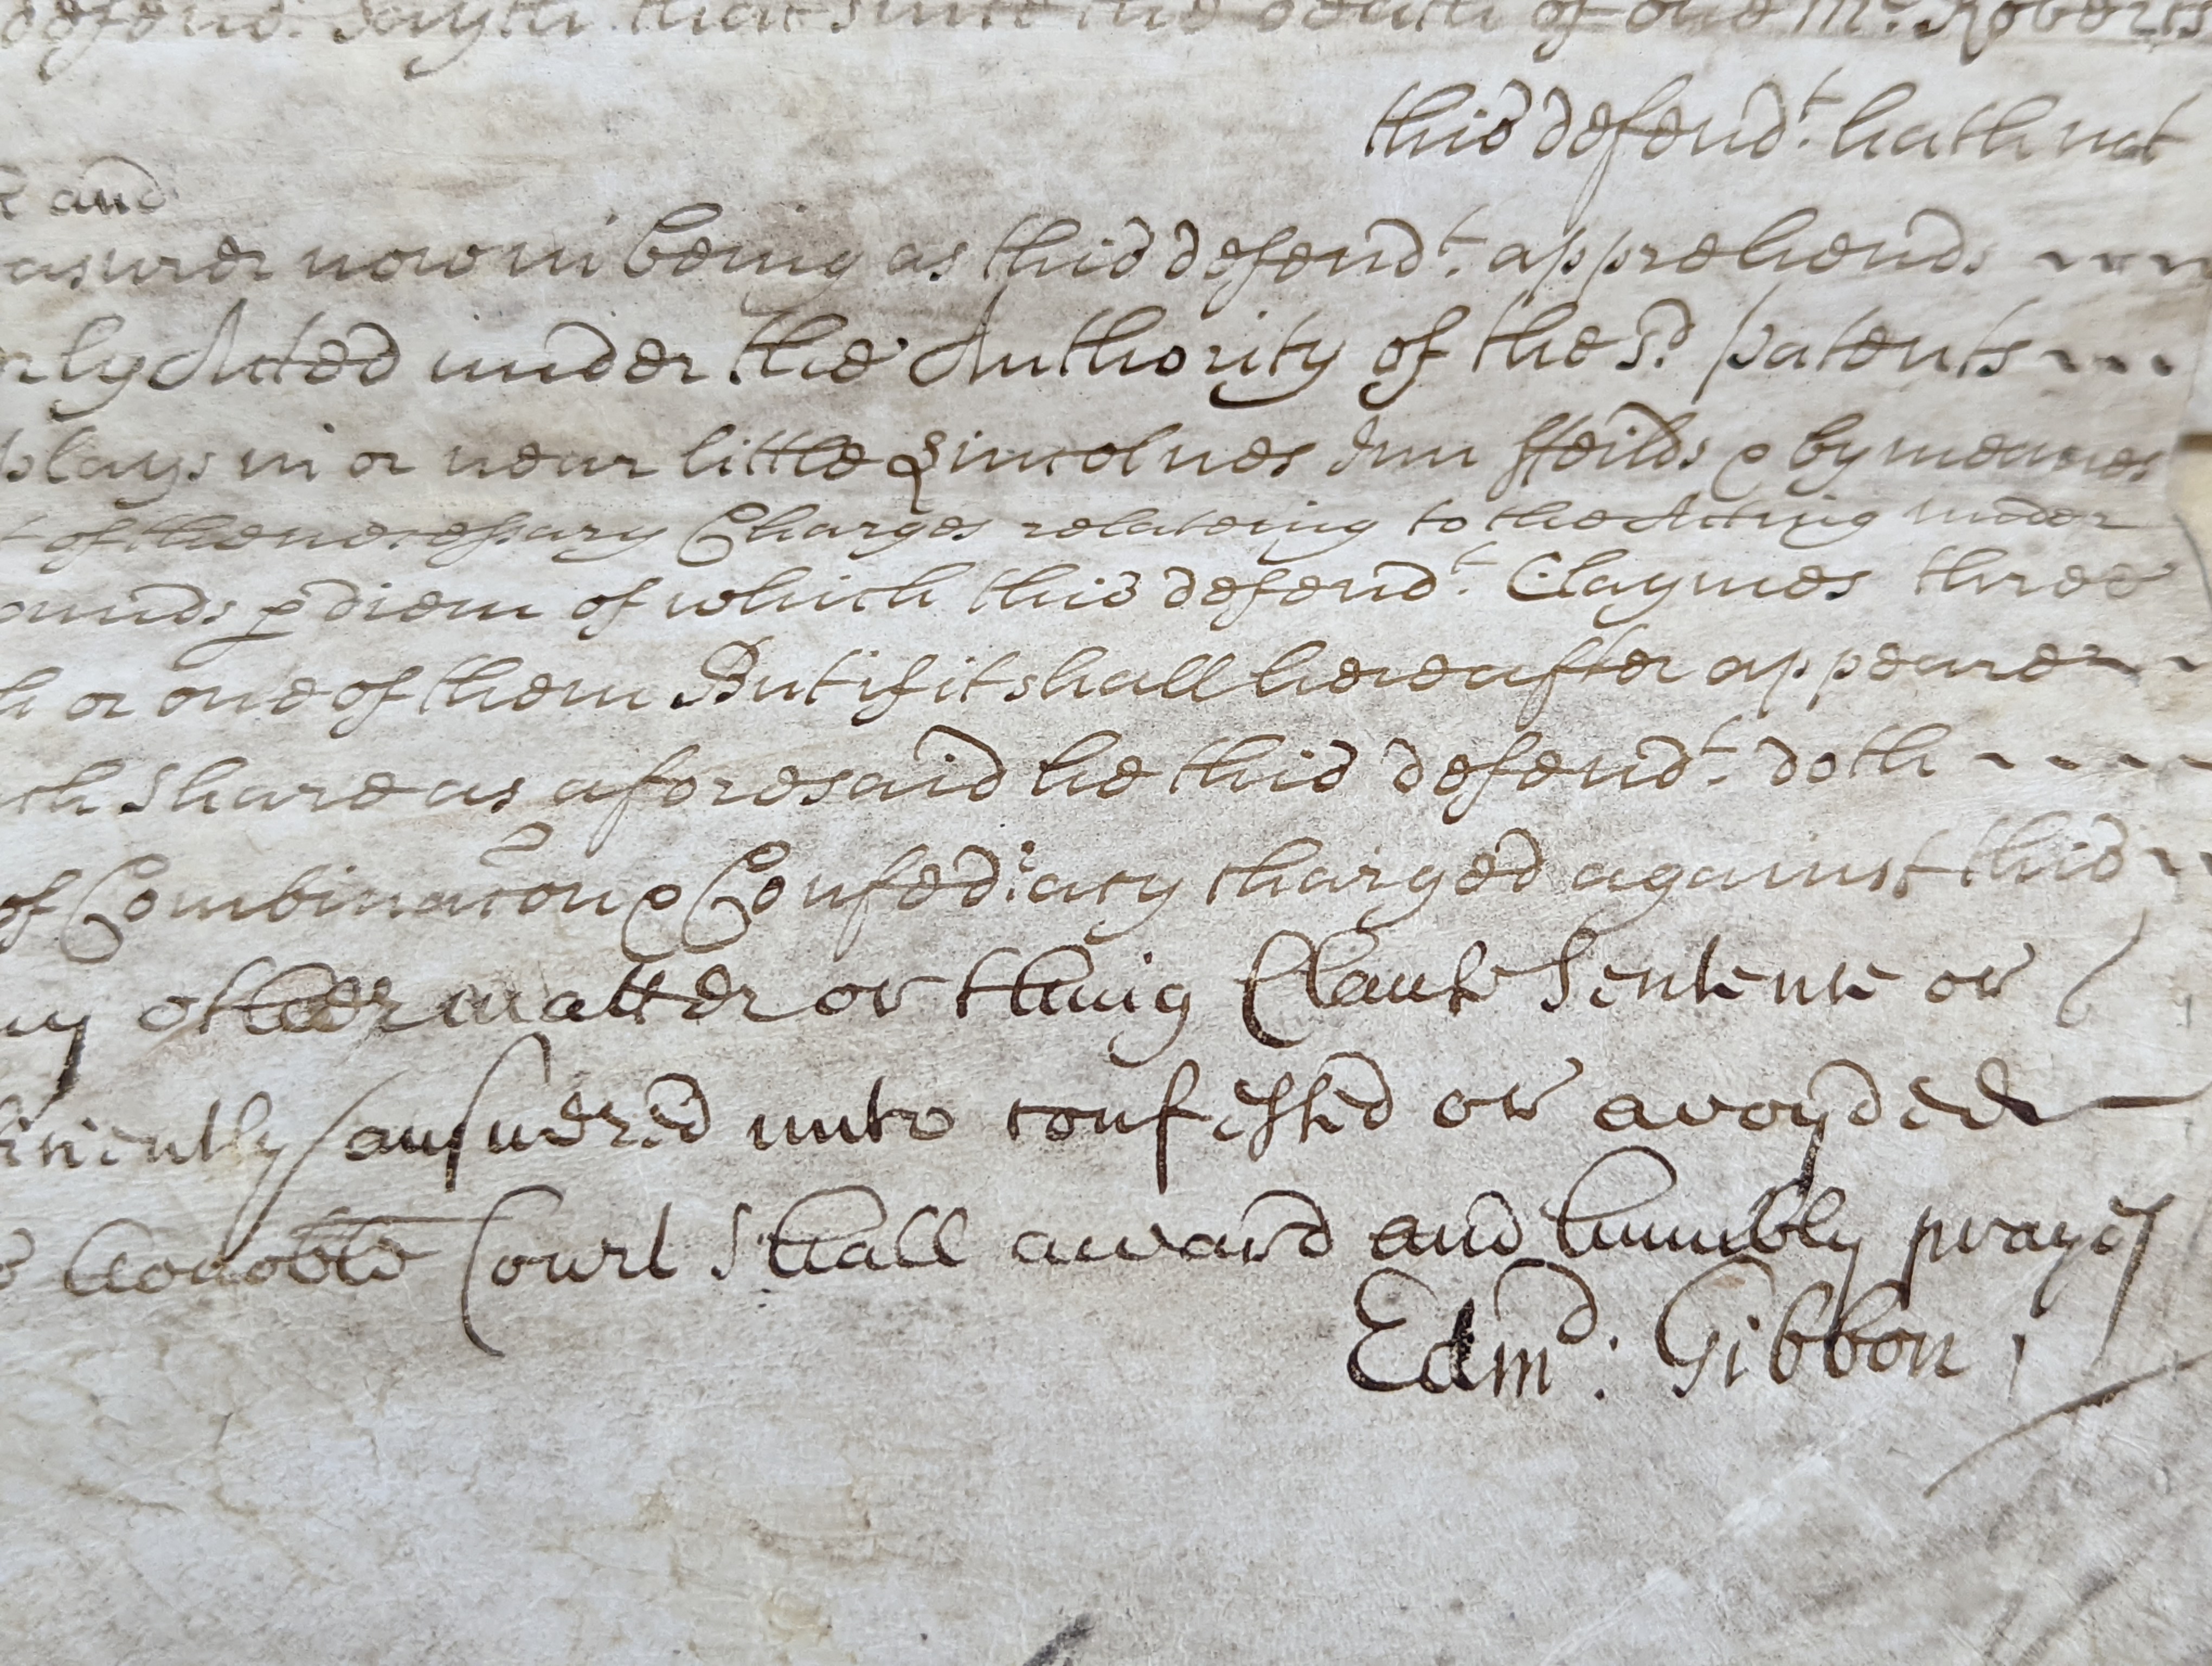 defend.t Sayth that since the death of one Mr. Roberts
this defend.t hath not
and
asurer now in being as this defend.t apprehends
rly Acted under the Authority of the s.d patents
playes in or near little Lincolnes Inn ffeilds & by meanes
of the necessary Charges relateing to the Acting under
ounds p diem of which this defend.t Claymes three
h or one of them But if it shall hereafter appeare
ch Share as aforesaid he this defend.t doth
of Combinacon & Confed:acy charged against this
ny other matter or thing Clause Sentence or
ficiently answered unto confessed or avoyded
honoble Court Shall award and humbly prayes
Edm.d: Gibbon